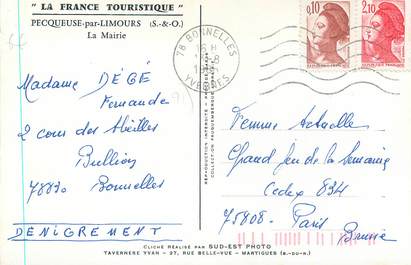 "LA FRANCE TOURISTIQUE"
PECQUEUSE-par-LIMOURS (S.-&-O.)
La Mairie
78 BONNELLES
16 H
YVELINES
0,10
2,10
Madame DÉGÉ
Fernande
2 cour des Abeilles
Bullion
78830 Bonnelles
DÉNIGREMENT
REPRODUCTION INTERDITE
Femme Actuelle
Grand Jeu de la Semaine
Cedex 834
75808 - Paris
Brune
CLICHÉ RÉALISÉ PAR SUD-EST PHOTO
TAVERNERE YVAN - 27, RUE BELLE-VUE - MARTIGUES (B.-DU-R.)